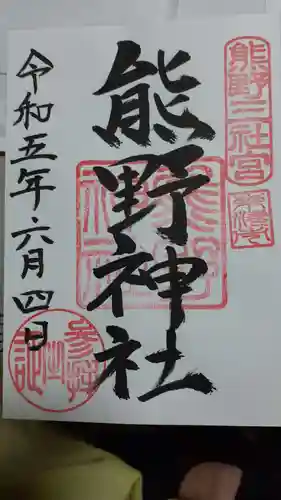 熊野三社宮
熊野神社
令和五年六月四日
参拝之証